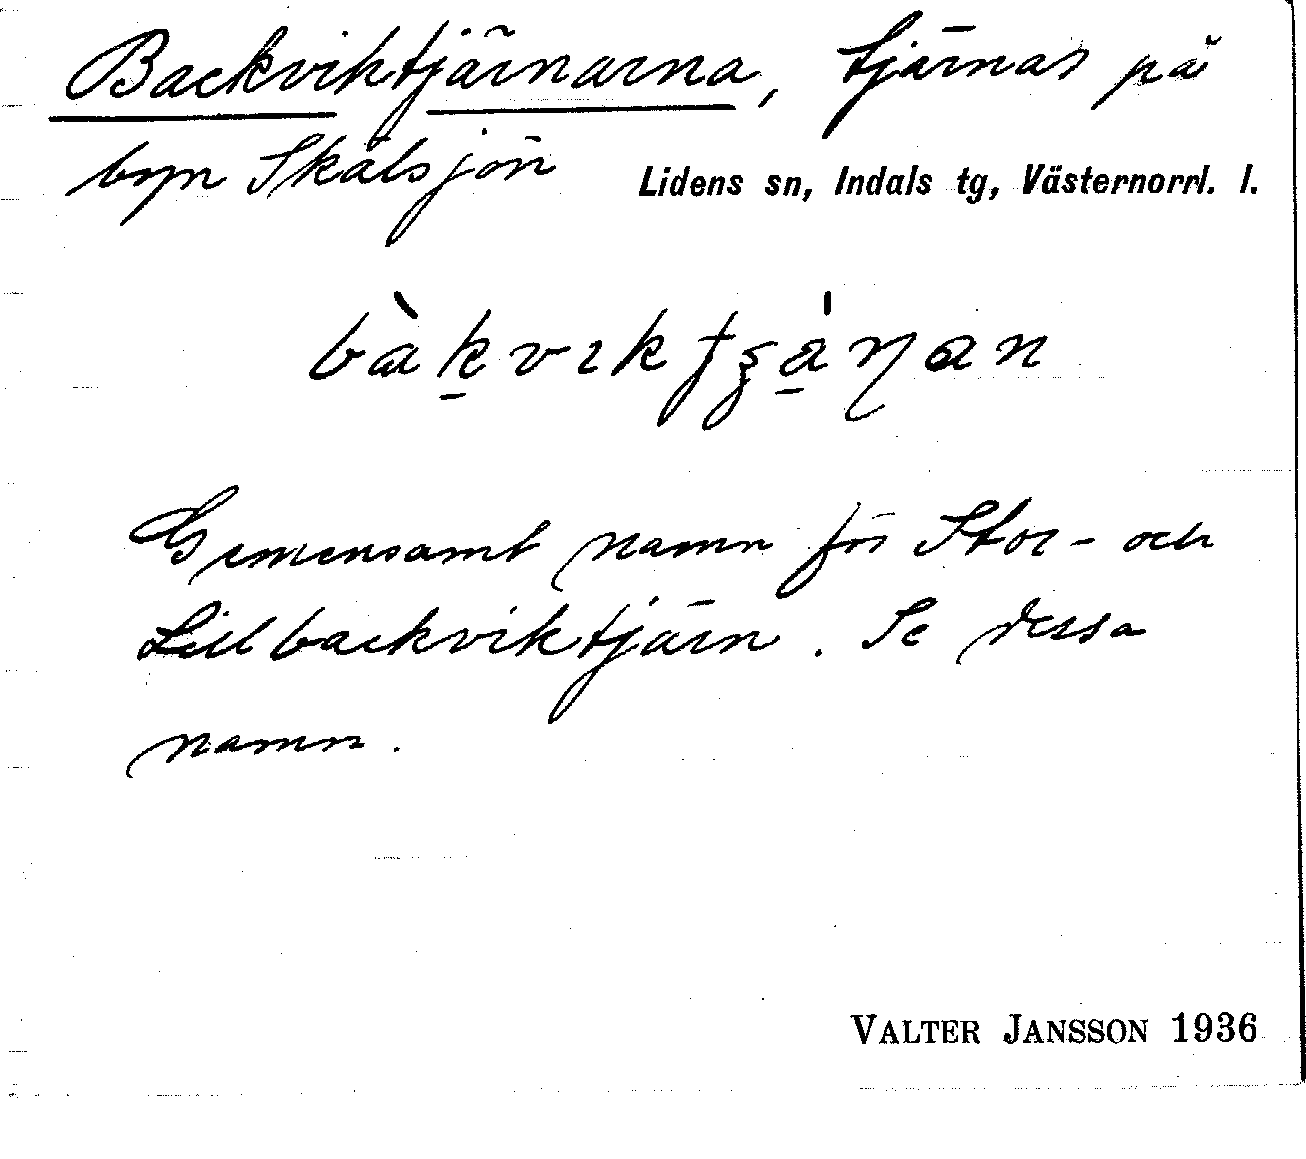 Backviktjärnarna, tjärnar på
byn Skälsjön Lidens sn, Indals tg, Västernorrl. l.
Gemensamt namn för Stor- och
Lillbackviktjärn. Se dessa
namn.
VALTER JANSSON 1936